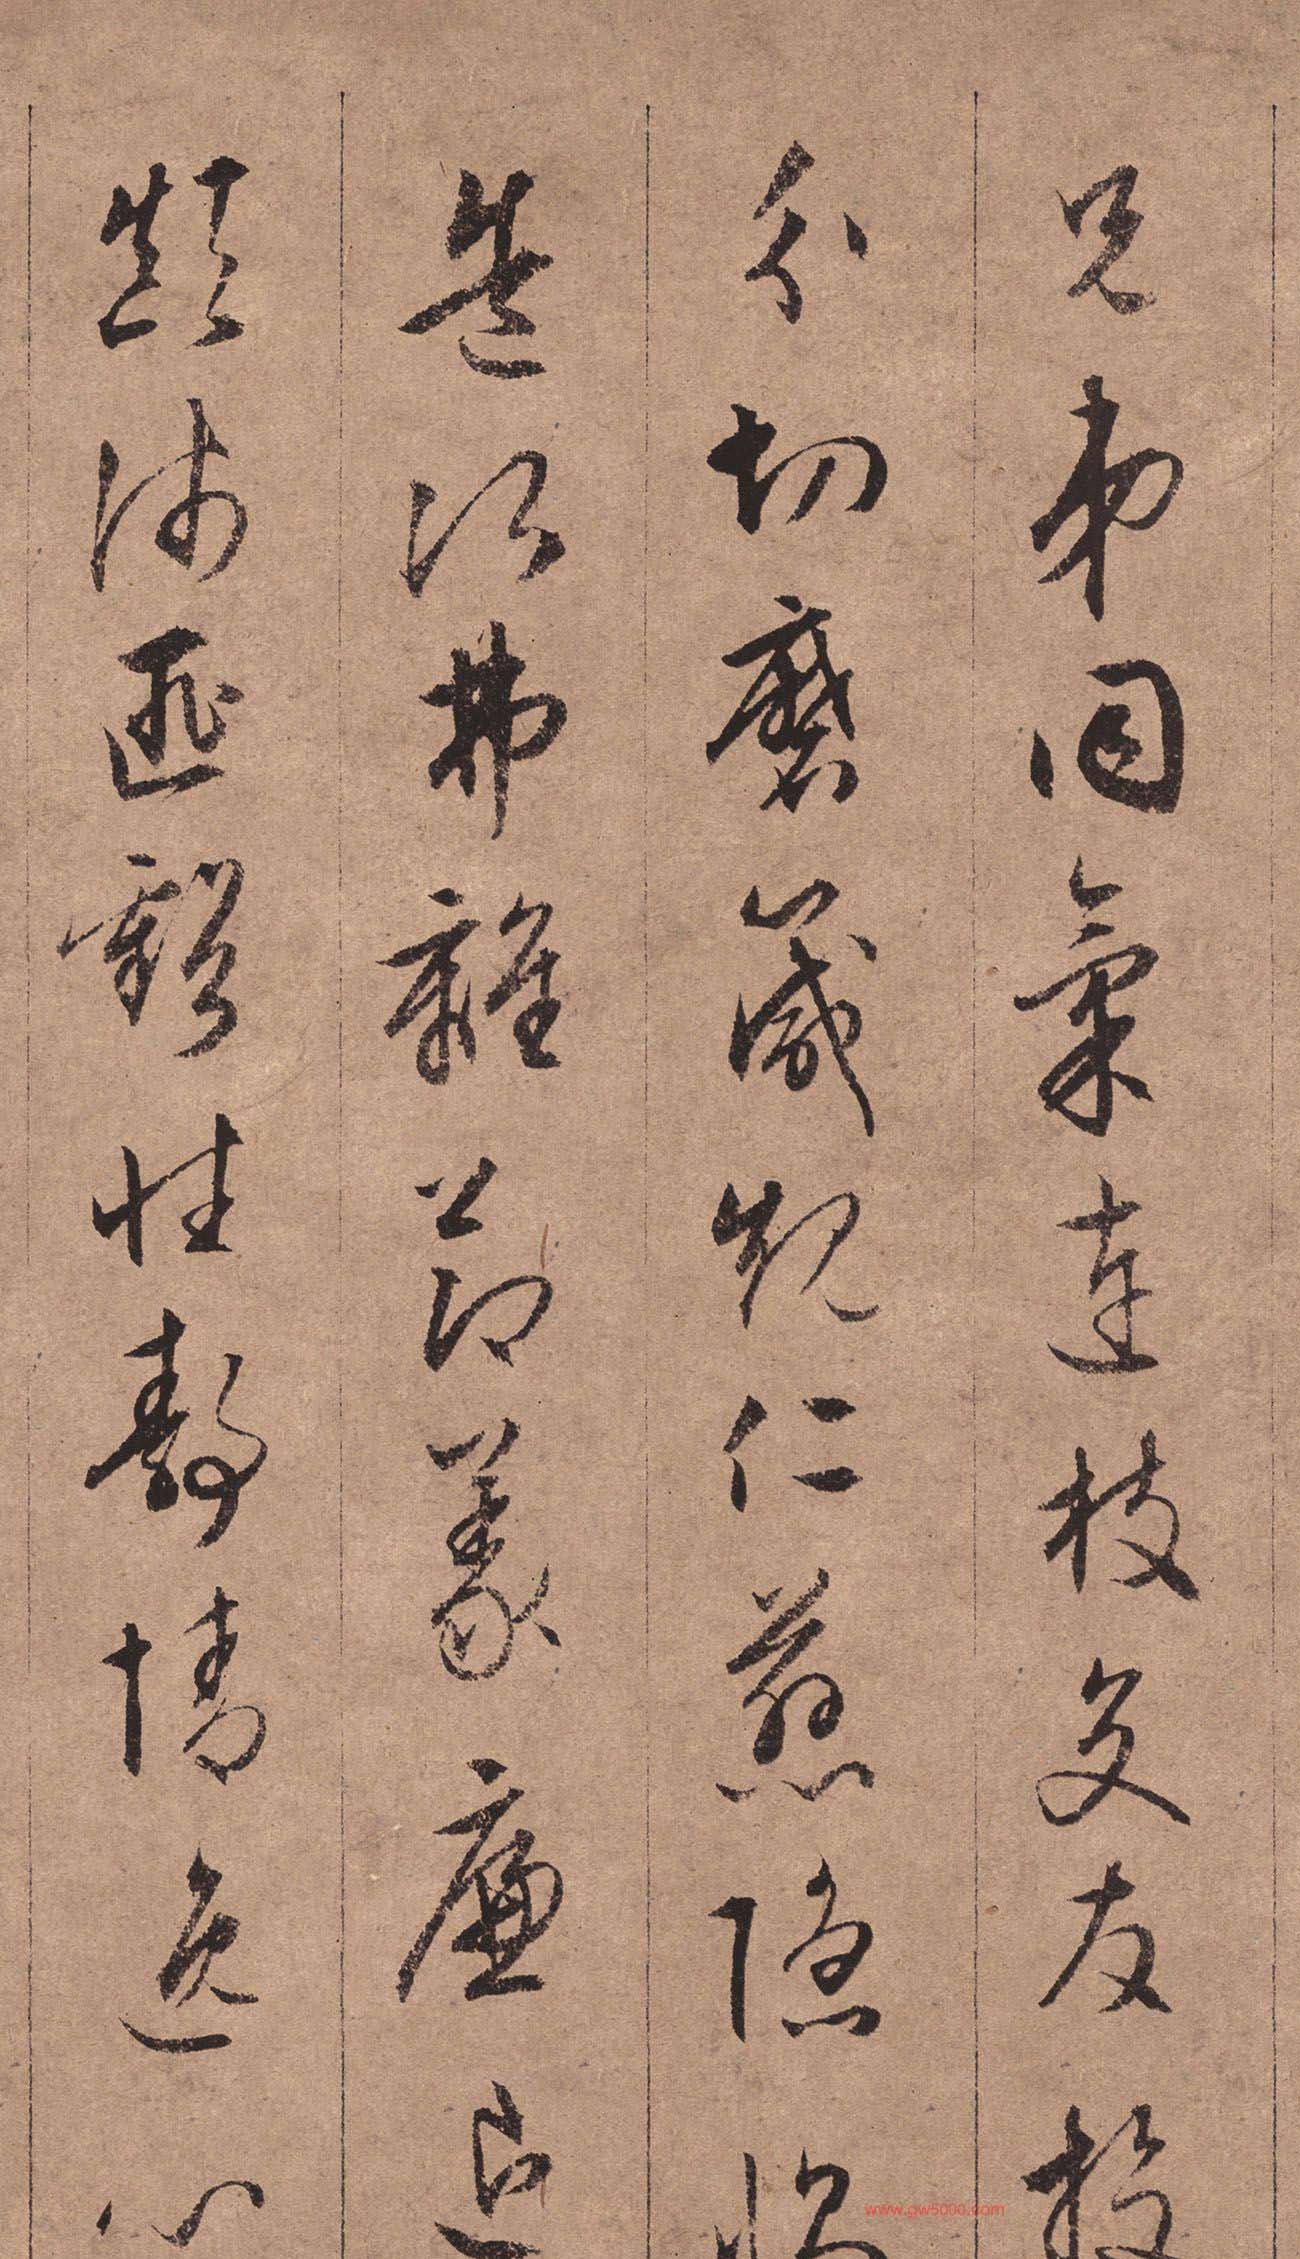 兄弟同氣連枝交友投
分切磨箴規仁慈隱惻
造次弗離節義廉退
顛沛匪虧性靜情逸心
www.gw5000.com